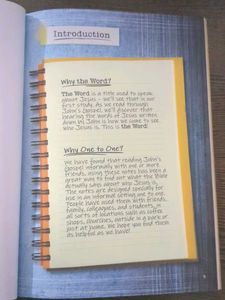 Introduction
Why the Word?
The Word is a title used to speak
about Jesus – we'll see that in our
first study. As we read through
John's Gospel, we'll discover that
hearing the words of Jesus written
down by John is how we come to see
who Jesus is. This is the Word!
Why One to One?
We have found that reading John's
gospel informally with one or more
friends, using these notes has been a
great way to find out what the Bible
actually says about who Jesus is.
The notes are designed specially for
use in an informal setting one to one.
People have used them with friends,
family, colleagues, and students, in
all sorts of locations such as coffee
shops, churches, outside in a park or
just at home. We hope you find them
as helpful as we have!